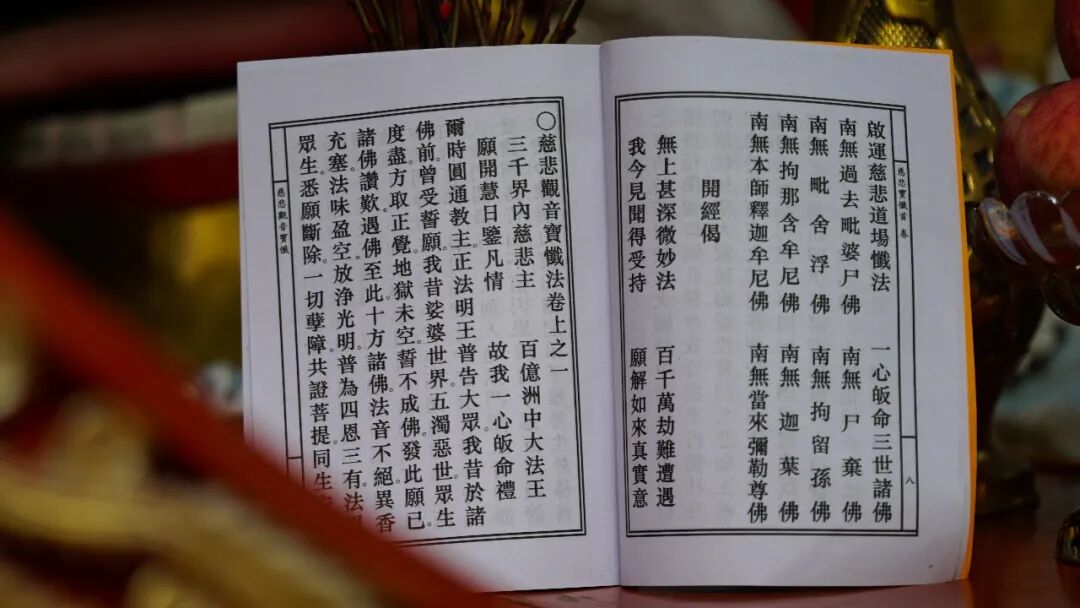 慈悲寶懺首卷
八
啟運慈悲道場懺法　一心皈命三世諸佛
南無過去毗婆尸佛　南無尸棄佛
南無毗舍浮佛　南無拘留孫佛
南無拘那含牟尼佛　南無迦葉佛
南無本師釋迦牟尼佛　南無當來彌勒尊佛
開經偈
無上甚深微妙法　百千萬劫難遭遇
我今見聞得受持　願解如來真實意
○慈悲觀音寶懺法卷上之一
三千界內慈悲主　百億洲中大法王
願開慧日鑒凡情　故我一心皈命禮
爾時圓通教主。正法明王普告大眾。我昔於諸
佛前。曾受誓願。我昔娑婆世界。五濁惡世。眾生
度盡。方取正覺。地獄未空。誓不成佛。發此願已。
諸佛讚歎。遇佛至此。十方諸佛。法音不絕。異香
充塞。法味盈空。放淨光明。普為四恩三有。法
眾生。悉願斷除。一切孽障。共證菩提。同生
慈悲觀音寶懺